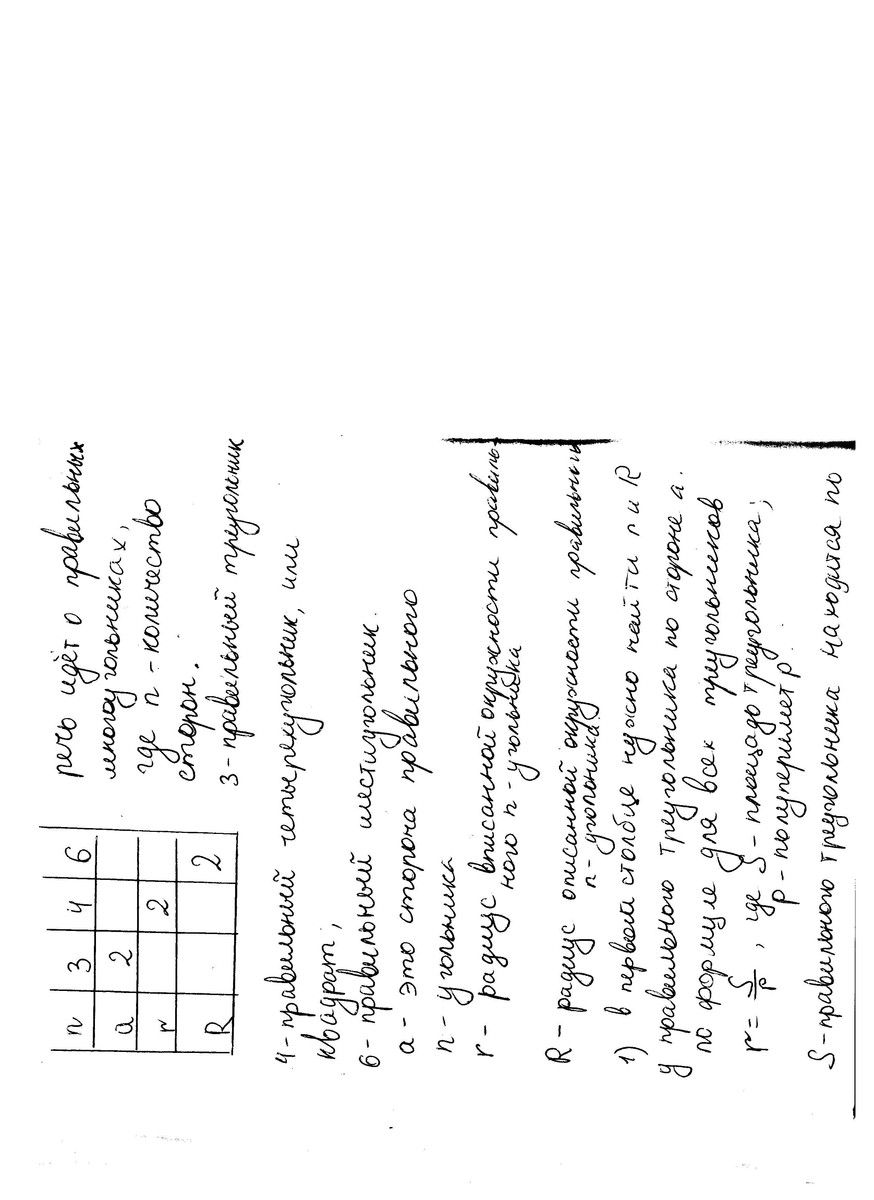 n 3 4 6
a 2
r 2
R 2
речь идёт о правильных
многоугольниках,
где n - количество
сторон.
3 - правильный треугольник
4 - правильный четырехугольник, или
квадрат;
6 - правильный шестиугольник.
a - это сторона правильного
n - угольника
r - радиус вписанной окружности правиль-
ного n - угольника
R - радиус описанной окружности правильных
n - угольника.
1) в первом столбце нужно найти r и R
у правильного треугольника по стороне a.
по формуле для всех треугольников
r = S/p, где S - площадь треугольника;
p - полупериметр.
S - правильного треугольника находится по